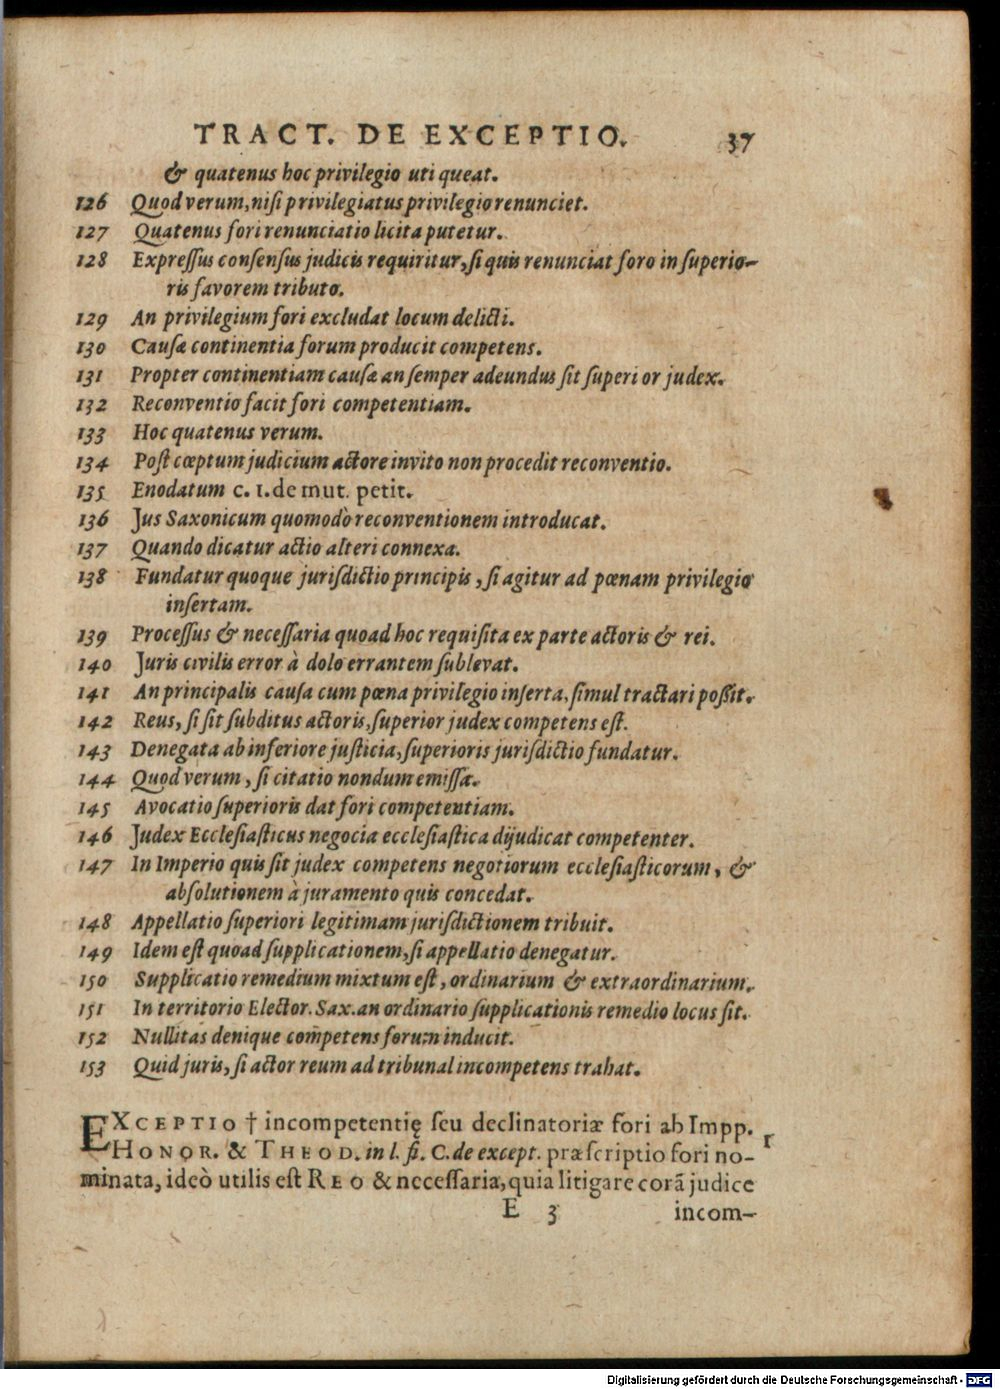 TRACT. DE EXCEPTIO. 37
& quatenus hoc privilegio uti queat.
126 Quod verum, niſi privilegiatus privilegio renunciet.
127 Quatenus fori renunciatio licita putetur.
128 Expreſſus conſenſus judicis requiritur, ſi quis renunciat foro in ſuperio-
ris favorem tributo.
129 An privilegium fori excludat locum delicti.
130 Cauſæ continentia forum producit competens.
131 Propter continentiam cauſæ an ſemper adeundus ſit ſuperi or judex.
132 Reconventio facit fori competentiam.
133 Hoc quatenus verum.
134 Poſt cœptum judicium actore invito non procedit reconventio.
135 Enodatum c. 1. de mut. petit.
136 Jus Saxonicum quomodò reconventionem introducat.
137 Quando dicatur actio alteri connexa.
138 Fundatur quoque jurisdictio principis, ſi agitur ad pœnam privilegio
inſertam.
139 Proceſſus & neceſſaria quoad hoc requiſita ex parte actoris & rei.
140 Juris civilis error à dolo errantem ſublevat.
141 An principalis cauſa cum pœna privilegio inſerta, ſimul tractari poſſit.
142 Reus, ſi ſit ſubditus actoris, ſuperior judex competens eſt.
143 Denegata ab inferiore juſticia, ſuperioris juriſdictio fundatur.
144 Quod verum, ſi citatio nondum emiſſa.
145 Avocatio ſuperioris dat fori competentiam.
146 Judex Eccleſiaſticus negocia eccleſiaſtica dijudicat competenter.
147 In Imperio quis ſit judex competens negotiorum eccleſiaſticorum, &
abſolutionem à juramento quis concedat.
148 Appellatio ſuperiori legitimam juriſdictionem tribuit.
149 Idem eſt quoad ſupplicationem, ſi appellatio denegatur.
150 Supplicatio remedium mixtum eſt, ordinarium & extraordinarium.
151 In territorio Elector. Sax. an ordinario ſupplicationis remedio locus ſit.
152 Nullitas denique competens forum inducit.
153 Quid juris, ſi actor reum ad tribunal incompetens trahat.
EXCEPTIO † incompetentię ſeu declinatoriæ fori ab Impp. 1
HONOR. & THEOD. in l. fi. C. de except. præſcriptio fori no-
minata, ideò utilis eſt REO & neceſſaria, quia litigare corã judice
E 3 incom-
Digitalisierung gefördert durch die Deutsche Forschungsgemeinschaft - DFG